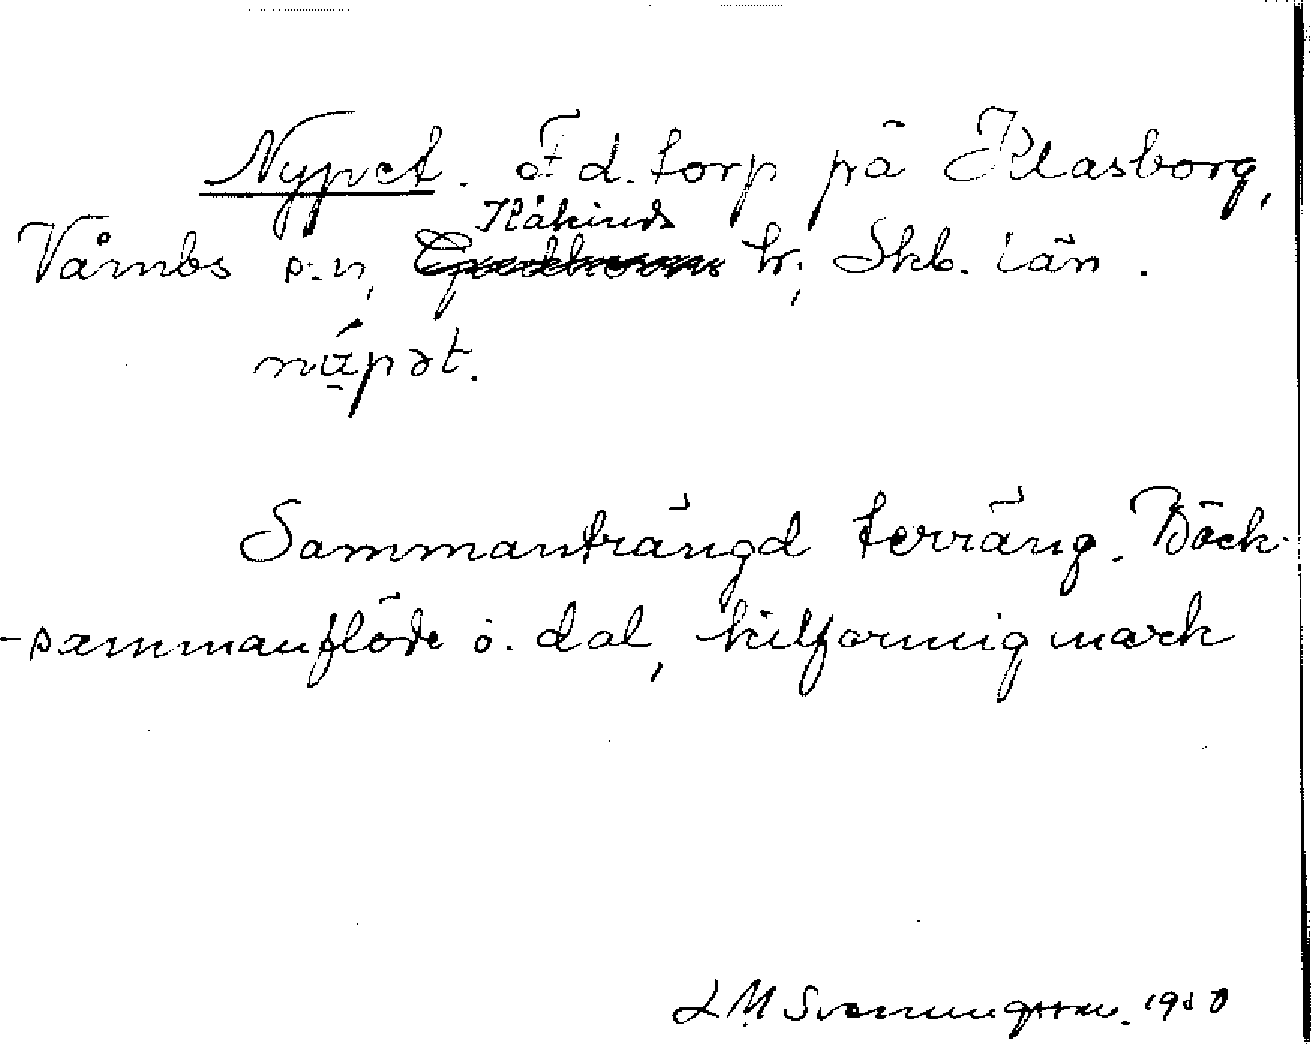 Nypet. F d. torp på Klasborg,
Kåkinds
Våmbs s:n, hr, Skb. län.
Sammanträngd terräng. Bäck-
-sammanflöde o. dal, kilformig mark
L M Svenningsson. 1950